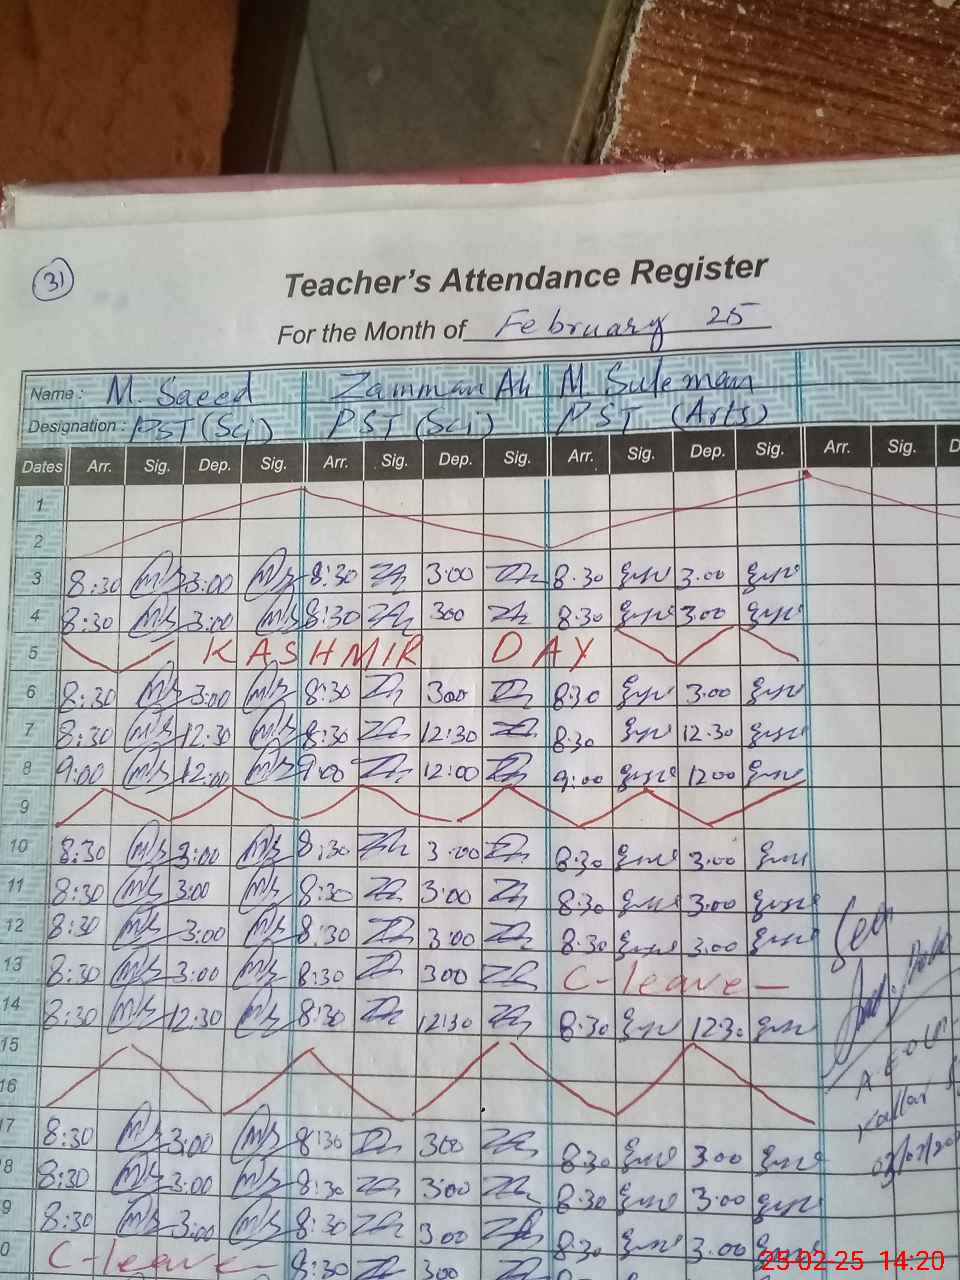 31
Teacher's Attendance Register
For the Month of February 25
Name: M. Saeed Zamman Ali M. Suleman
Designation: PST (Sci) PST (Sci) PST (Arts)
Dates Arr. Sig. Dep. Sig. Arr. Sig. Dep. Sig. Arr. Sig. Dep. Sig. Arr. Sig. D
1
2
3 8:30 3:00 8:30 3:00 8.30 3.00
4 8:30 3:00 8:30 300 8.30 3.00
5 KASHMIR DAY
6 8:30 3:00 8:30 300 8.30 3.00
7 8:30 12:30 8:30 12:30 8.30 12.30
8 9:00 12:00 9:00 12:00 9:00 1200
9
10 8:30 3:00 8:30 3:00 8.30 3.00
11 8:30 3:00 8:30 3:00 8.30 3.00
12 8:30 3:00 8:30 3:00 8.30 3.00
13 8:30 3:00 8:30 300 C-leave
14 8:30 12:30 8:30 12:30 8.30 12.30
15
16
17 8:30 3:00 8:30 300 8.30 3.00
8 8:30 3:00 8:30 3:00 8.30 3:00
9 8:30 3:00 8:30 300 8.30 3.00
0 C-leave 8:30 300
25-02-25 14:20